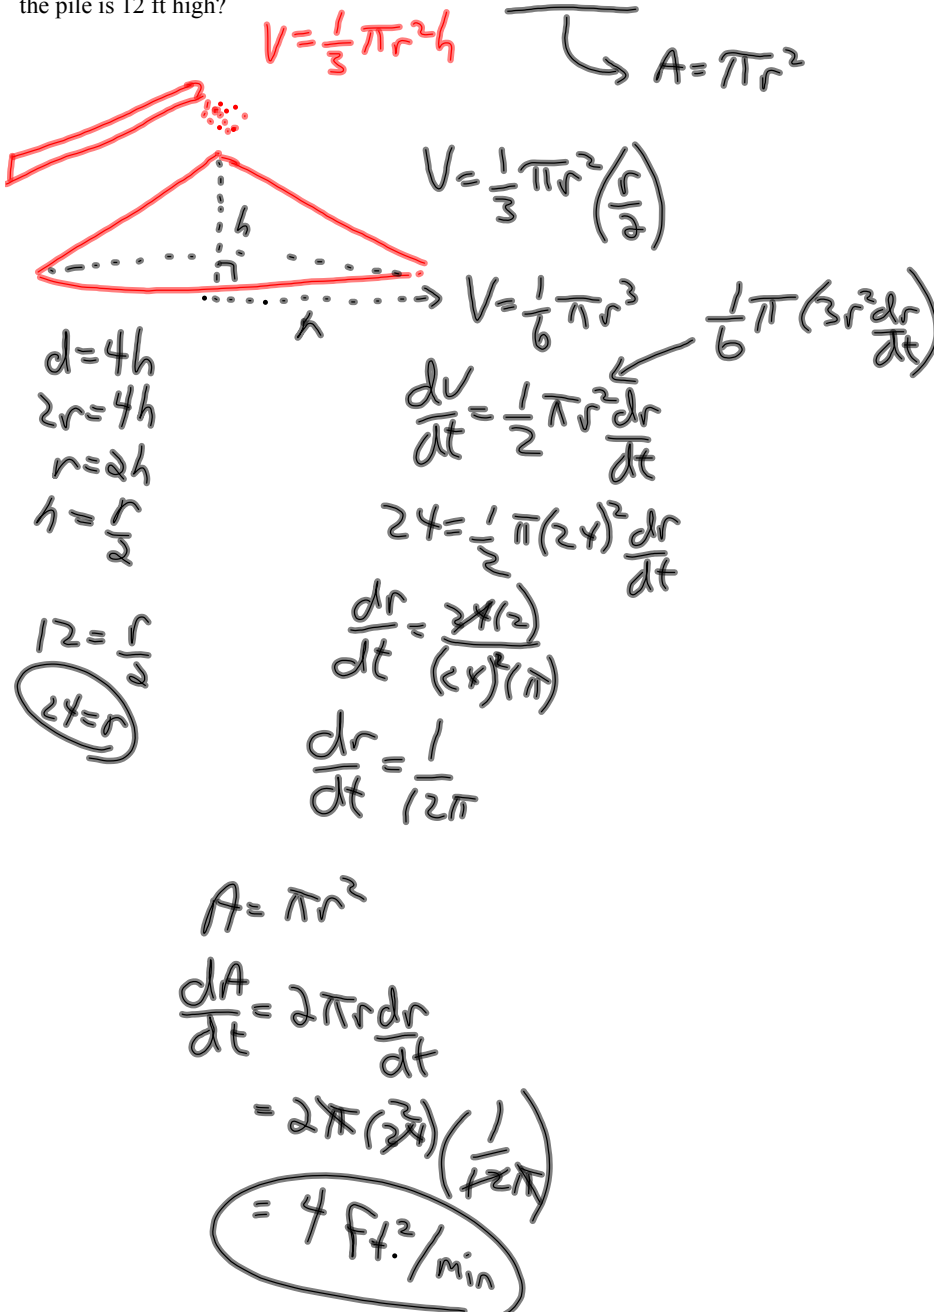 the pile is 12 ft high?
V = 1/3 πr²h
A = πr²
V = 1/3 πr² (r/2)
h
r
V = 1/6 πr³
1/6 π (3r² dr/dt)
d = 4h
2r = 4h
r = 2h
h = r/2
12 = r/2
24 = r
dV/dt = 1/2 πr² dr/dt
24 = 1/2 π(24)² dr/dt
dr/dt = 24(2)/(24)²(π)
dr/dt = 1/12π
A = πr²
dA/dt = 2πr dr/dt
= 2π(24)(1/12π)
2
= 4 ft.²/min